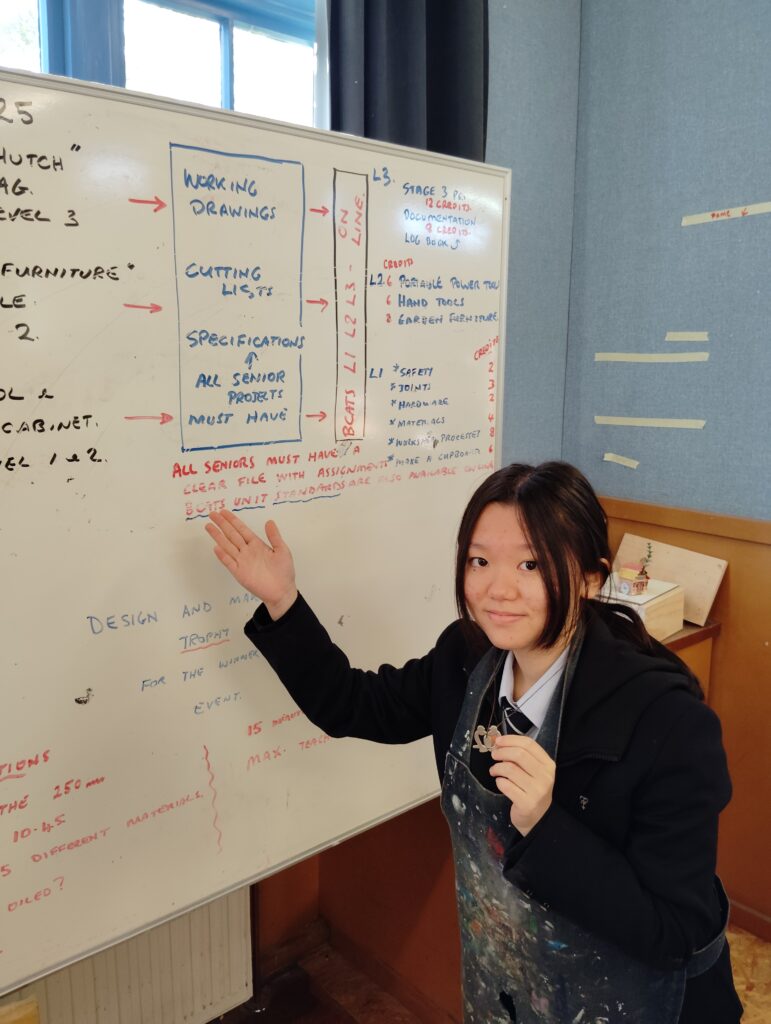 25
HUTCH"
AG.
EVEL 3
FURNITURE"
LE.
2.
OL &
CABINET.
VEL 1 & 2.
WORKING
DRAWINGS
CUTTING
LISTS
SPECIFICATIONS
ALL SENIOR
PROJECTS
MUST HAVE
BCATS L1 L2 L3 - ON LINE.
L3.
STAGE 3
12 CREDITS.
DOCUMENTATION
8 CREDITS.
LOG BOOK
CREDIT
L2 6 PORTABLE POWER TOOL
6 HAND TOOLS
8 GARDEN FURNITURE
CREDITS
L1 * SAFETY 2
* JOINTS 3
* HARDWARE 2
* MATERIALS 4
* WORKSHOP PROCESSES 8
* MAKE A CUPBOARD 6
ALL SENIORS MUST HAVE A
CLEAR FILE WITH ASSIGNMENTS
BCATS UNIT STANDARDS ARE ALSO AVAILABLE ON LINE
DESIGN AND MA
TROPHY
FOR THE WINNER
EVENT.
15
MAX. TEAC
TIONS
THE 250mm
10-45
5 DIFFERENT MATERIALS.
OILED?